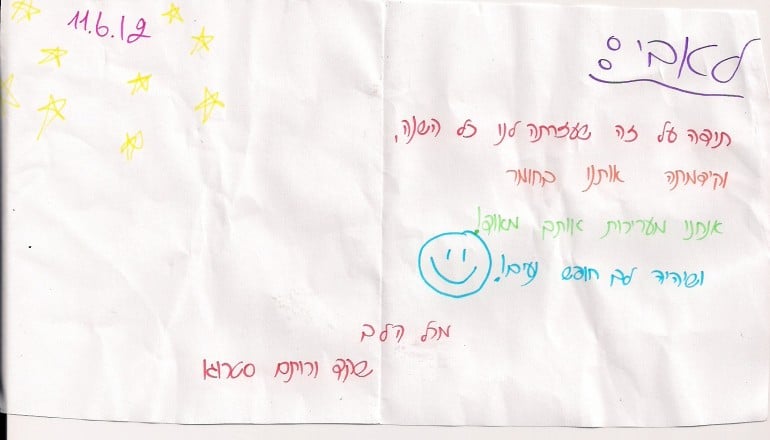 11.6.12
לאבי:
תודה על זה שעזרתה לנו כל השנה,
וקידמתה אותנו בחומר
אנחנו מעריכות אותך מאוד!
ושיהיה לך חופש נעים!
מכל הלב
שקד ורותם